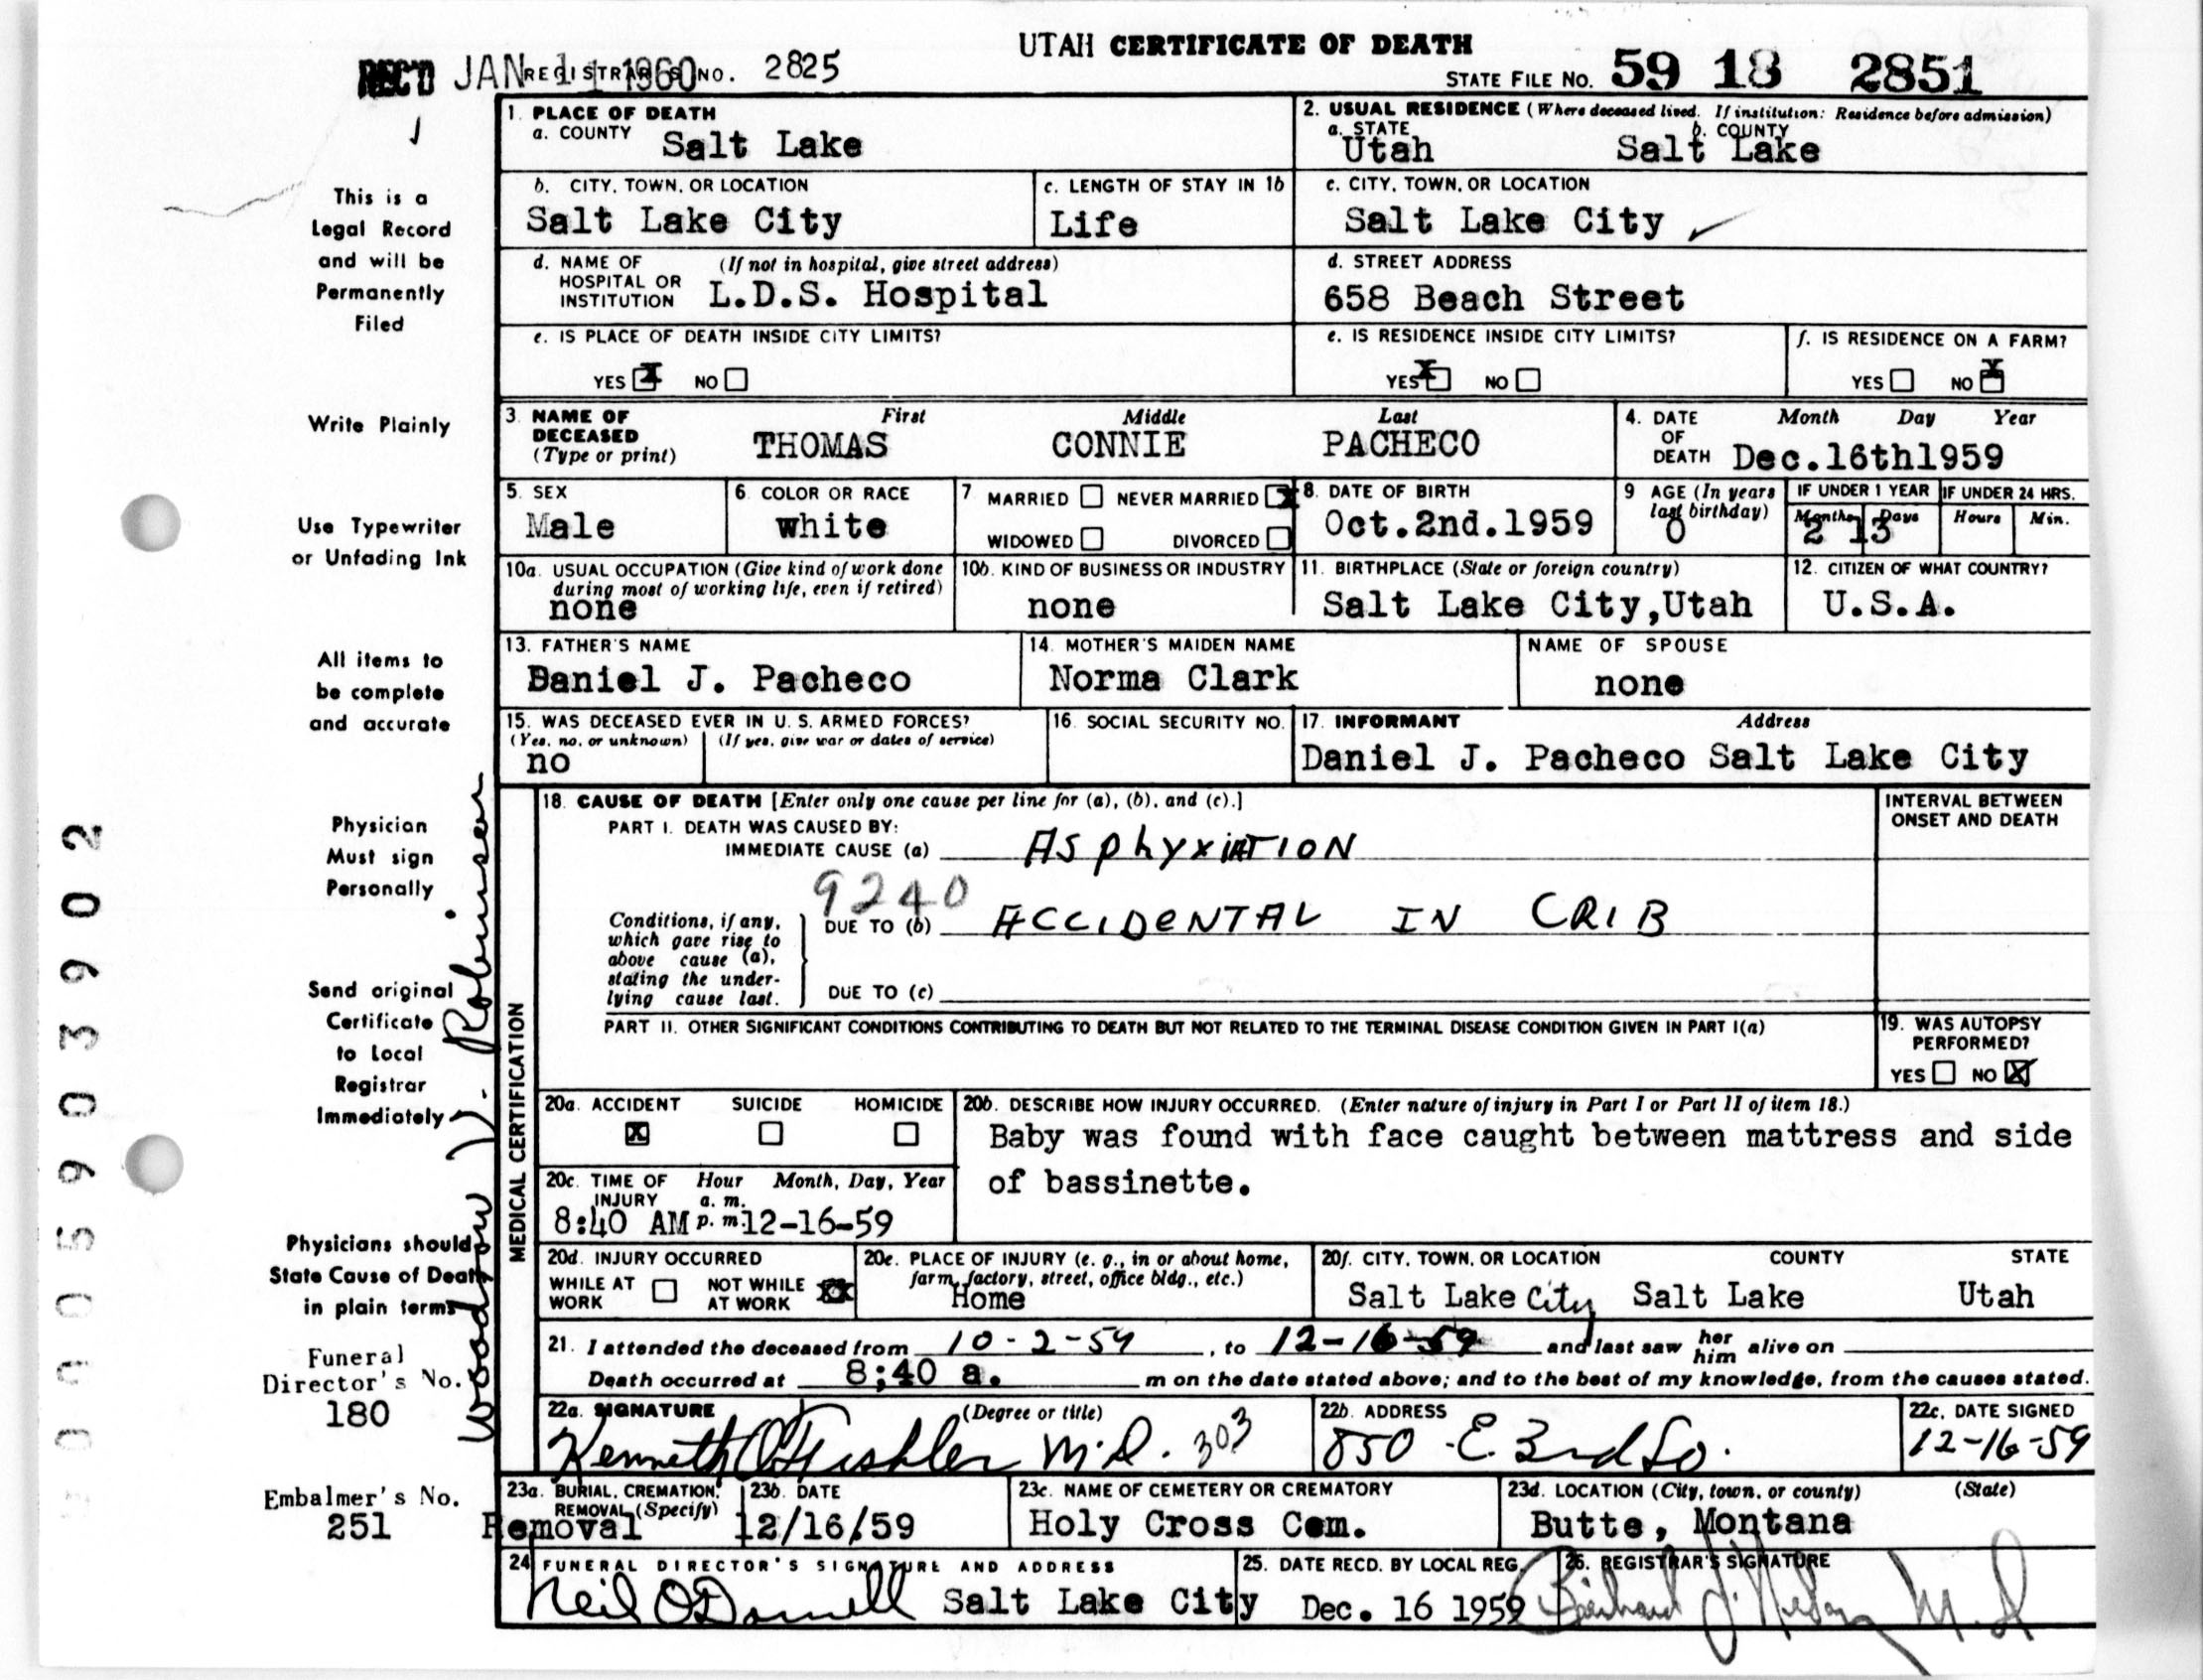 UTAH CERTIFICATE OF DEATH
REC'D JAN 11 1960 REGISTRAR'S NO. 2825
STATE FILE NO. 59 18 2851
1. PLACE OF DEATH
a. COUNTY Salt Lake
2. USUAL RESIDENCE (Where deceased lived. If institution: Residence before admission)
a. STATE Utah b. COUNTY Salt Lake
b. CITY, TOWN, OR LOCATION Salt Lake City
c. LENGTH OF STAY IN 1b Life
c. CITY, TOWN, OR LOCATION Salt Lake City
d. NAME OF HOSPITAL OR INSTITUTION (If not in hospital, give street address) L.D.S. Hospital
d. STREET ADDRESS 658 Beach Street
e. IS PLACE OF DEATH INSIDE CITY LIMITS?
YES X NO
e. IS RESIDENCE INSIDE CITY LIMITS?
YES X NO
f. IS RESIDENCE ON A FARM?
YES NO X
3. NAME OF DECEASED (Type or print)
First Middle Last
THOMAS CONNIE PACHECO
4. DATE OF DEATH Month Day Year
Dec.16th1959
5. SEX Male
6. COLOR OR RACE white
7 MARRIED NEVER MARRIED X
WIDOWED DIVORCED
8. DATE OF BIRTH Oct.2nd.1959
9 AGE (In years last birthday) 0
IF UNDER 1 YEAR Months 2 Days 13
IF UNDER 24 HRS. Hours Min.
10a. USUAL OCCUPATION (Give kind of work done during most of working life, even if retired) none
10b. KIND OF BUSINESS OR INDUSTRY none
11. BIRTHPLACE (State or foreign country) Salt Lake City,Utah
12. CITIZEN OF WHAT COUNTRY? U.S.A.
13. FATHER'S NAME Daniel J. Pacheco
14. MOTHER'S MAIDEN NAME Norma Clark
NAME OF SPOUSE none
15. WAS DECEASED EVER IN U. S. ARMED FORCES?
(Yes, no, or unknown) (If yes, give war or dates of service)
no
16. SOCIAL SECURITY NO.
17. INFORMANT Address
Daniel J. Pacheco Salt Lake City
MEDICAL CERTIFICATION
18. CAUSE OF DEATH [Enter only one cause per line for (a), (b), and (c).]
INTERVAL BETWEEN ONSET AND DEATH
PART I. DEATH WAS CAUSED BY:
IMMEDIATE CAUSE (a) Asphyxiation
9240
Conditions, if any, which gave rise to above cause (a), stating the underlying cause last.
DUE TO (b) ACCIDENTAL IN CRIB
DUE TO (c)
PART II. OTHER SIGNIFICANT CONDITIONS CONTRIBUTING TO DEATH BUT NOT RELATED TO THE TERMINAL DISEASE CONDITION GIVEN IN PART I(a)
19. WAS AUTOPSY PERFORMED?
YES NO X
20a. ACCIDENT SUICIDE HOMICIDE
X
20b. DESCRIBE HOW INJURY OCCURRED. (Enter nature of injury in Part I or Part II of item 18.)
Baby was found with face caught between mattress and side
of bassinette.
20c. TIME OF INJURY Hour Month, Day, Year
a. m.
8:40 AM p. m. 12-16-59
20d. INJURY OCCURRED
WHILE AT WORK NOT WHILE AT WORK XX
20e. PLACE OF INJURY (e. g., in or about home, farm, factory, street, office bldg., etc.)
Home
20f. CITY, TOWN, OR LOCATION COUNTY STATE
Salt Lake City Salt Lake Utah
21. I attended the deceased from 10-2-59, to 12-16-59 and last saw her him alive on
Death occurred at 8:40 a. m on the date stated above; and to the best of my knowledge, from the causes stated.
22a. SIGNATURE (Degree or title)
Kenneth M.D. 303
22b. ADDRESS 850 E. 3rd So.
22c. DATE SIGNED 12-16-59
23a. BURIAL, CREMATION, REMOVAL (Specify) Removal
23b. DATE 12/16/59
23c. NAME OF CEMETERY OR CREMATORY Holy Cross Cem.
23d. LOCATION (City, town, or county) (State)
Butte, Montana
24 FUNERAL DIRECTOR'S SIGNATURE AND ADDRESS
Neil O'Donnell Salt Lake City
25. DATE RECD. BY LOCAL REG. Dec. 16 1959
26. REGISTRAR'S SIGNATURE
M.D.
This is a
Legal Record
and will be
Permanently
Filed
Write Plainly
Use Typewriter
or Unfading Ink
All items to
be complete
and accurate
Physician
Must sign
Personally
Send original
Certificate
to Local
Registrar
Immediately
Physicians should
State Cause of Death
in plain terms
Funeral
Director's No.
180
Embalmer's No.
251
Woodrow V. Robinson
0005903902